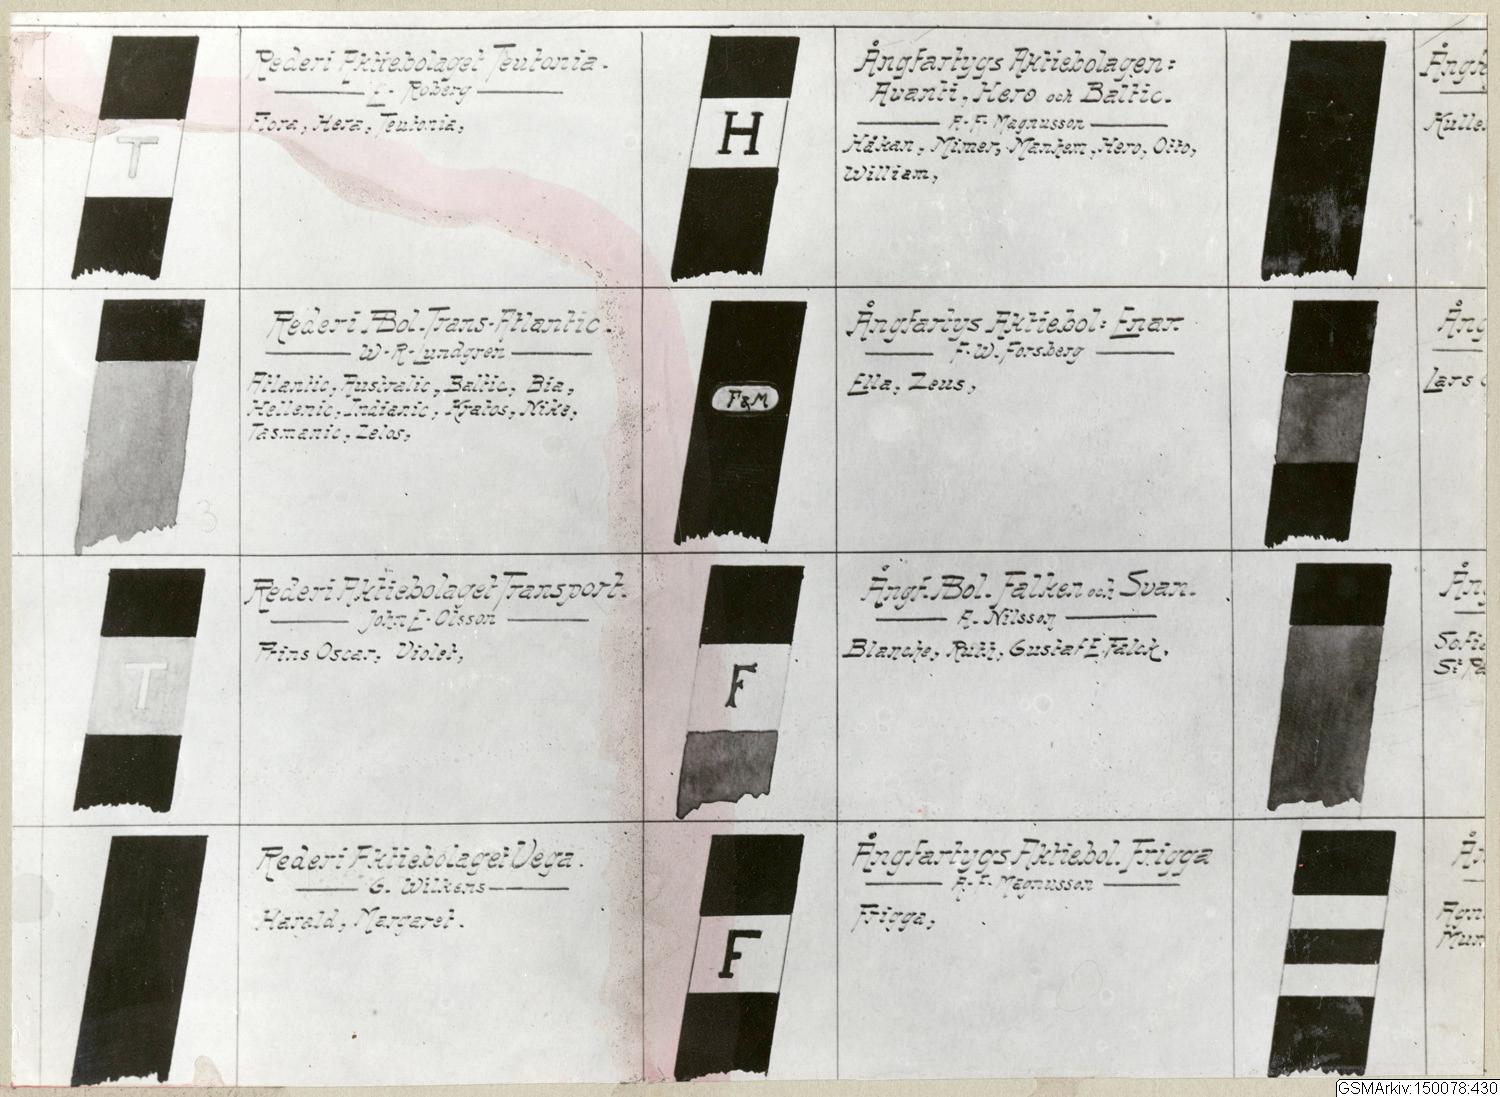 T
Rederi Aktiebolaget Teutonia.
E. Roberg
Flora, Hera, Teutonia,
H
Ångfartygs Aktiebolagen:
Avanti, Hero och Baltic.
A. F. Magnusson
Håkan, Mimer, Manhem, Hero, Otto,
William,
Kulle
Rederi ABol. Trans-Atlantic.
W. R. Lundgren
Atlantic, Australic, Baltic, Bia,
Hellenic, Indianic, Kratos, Nike,
Tasmanic, Zelos,
F&M
Ångfartys Aktiebol: Enar
F. W. Forsberg
Ella, Zeus,
Ång
Lars
T
Rederi Aktiebolaget Transport.
John E. Olsson
Prins Oscar, Violet,
F
Ångf. Bol. Falken och Svan.
A. Nilsson
Blanche, Ruth, Gustaf E. Falck.
Ån
Sofie
St Pa
Rederi Aktiebolaget Vega.
G. Wilkens
Harald, Margaret.
F
Ångfartygs Aktiebol. Frigga
A. F. Magnusson
Frigga,
Ån
Agn
Mun
GSMArkiv:150078:430